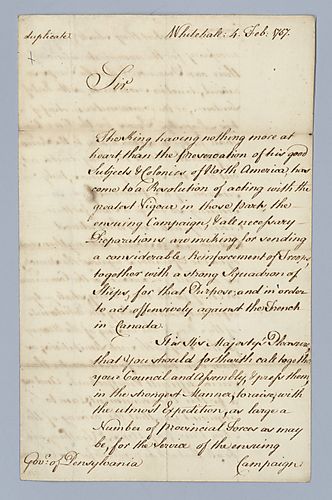 duplicate
Whitehall: 4. Feb. 1757.
Sir.
The King having nothing more at
heart than the Preservation of his good
Subjects & Colonies of North America, has
come to a Resolution of acting with the
greatest Vigour in those parts the
ensuing Campaign, & all necessary
Preparations are making for sending
a considerable Reinforcement of Troops,
together with a strong Squadron of
Ships, for that Purpose, and in order
to act offensively against the French
in Canada.
It is His Majesty's Pleasure,
that You should forthwith call together
your Council and Assembly, & press them,
in the strongest Manner, to raise, with
the utmost Expedition, as large a
Number of Provincial Forces as may
be, for the Service of the ensuing
Gov.r of Pensylvania
Campaign